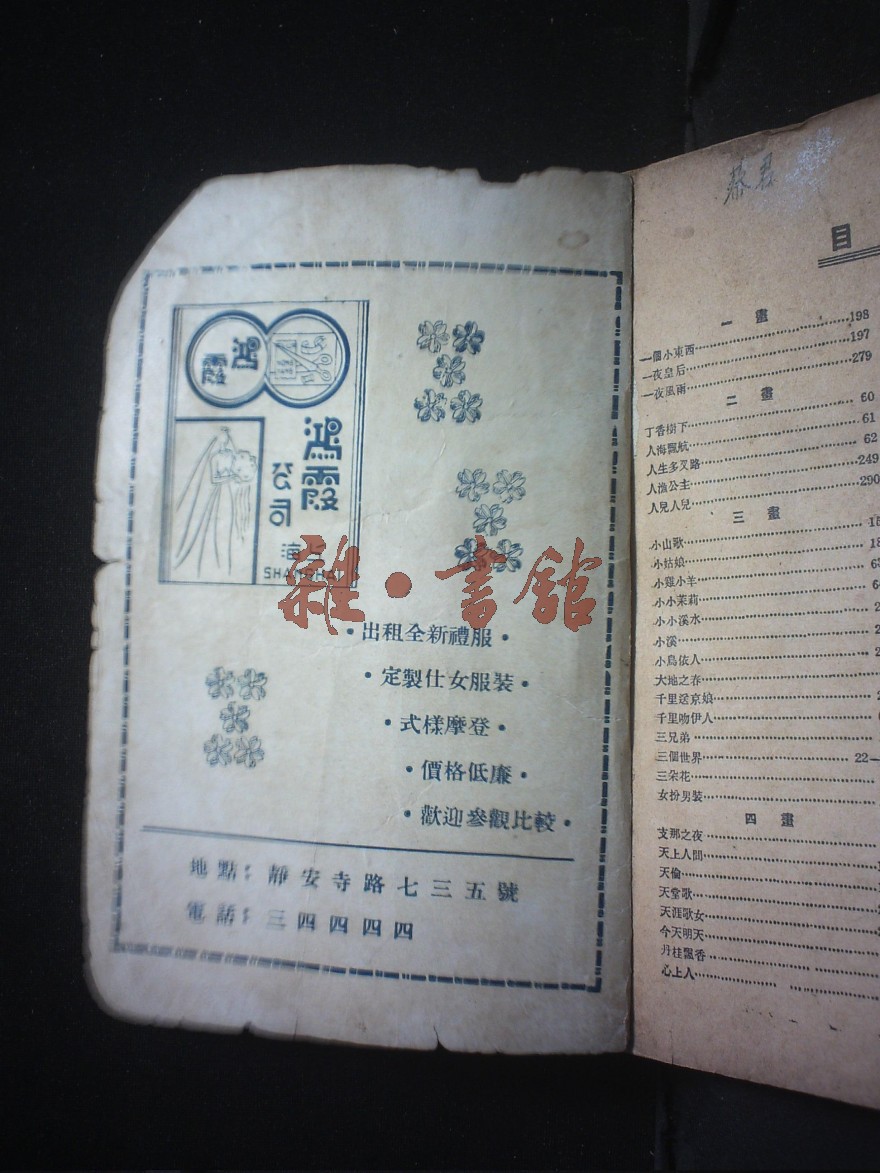 鴻霞
鴻霞
公司
上海
SHANGHAI
雜·書館
·出租全新禮服·
·定製仕女服裝·
·式樣摩登·
·價格低廉·
·歡迎參觀比較·
地點：靜安寺路七三五號
電話：三四四四四
目
一畫
一個小東西……198
一夜皇后……197
一夜風雨……279
二畫
丁香樹下……60
人海飄航……61
人生多叉路……62
人漁公主……249
人兒人兒……290
三畫
小山歌……
小姑娘……
小雞小羊……
小小茉莉……
小小溪水……
小溪……
小鳥依人……
大地之春……
千里送京娘……
千里吻伊人……
三兄弟……
三個世界……22—
三朵花……
女扮男裝……
四畫
支那之夜……
天上人間……
天倫……
天堂歌……
天涯歌女……
今天明天……
丹桂飄香……
心上人……